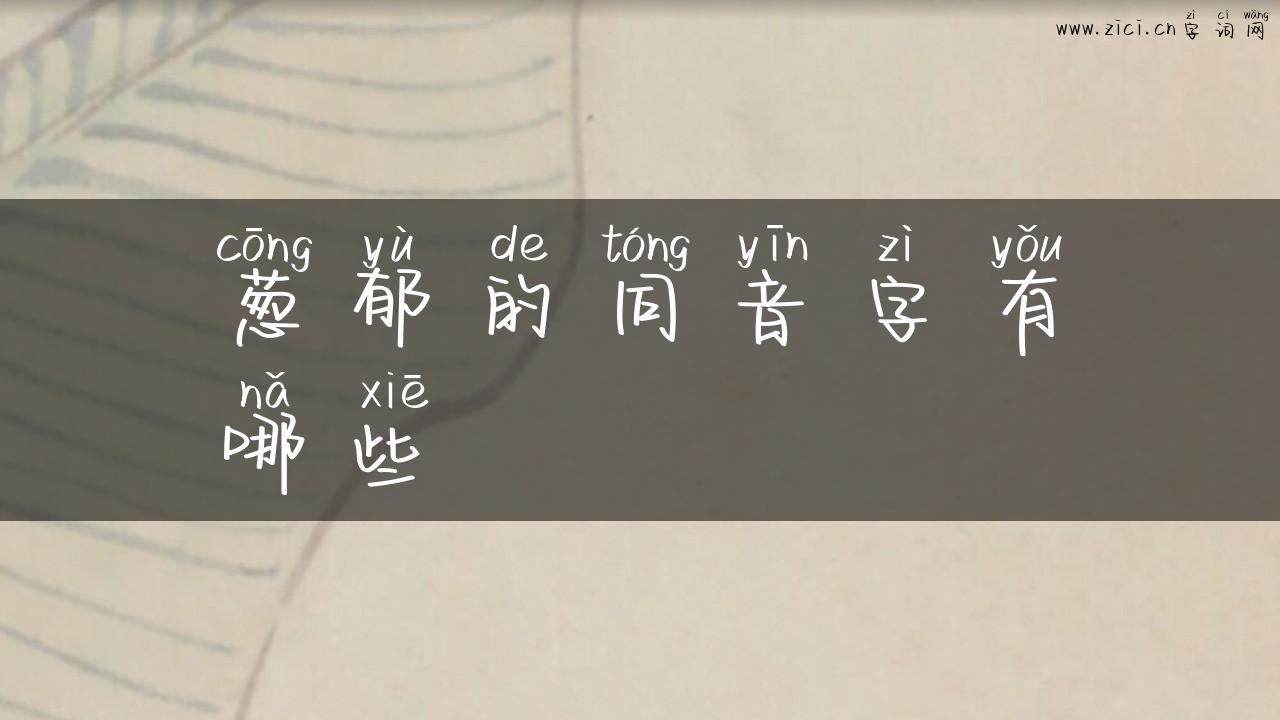 zì cí wǎng
www.zici.cn 字词网
cōng yù de tóng yīn zì yǒu
葱郁的同音字有
nǎ xiē
哪些